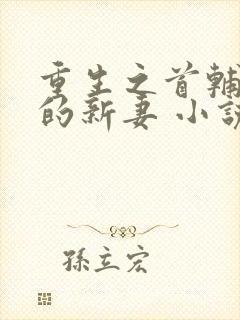 重生之首輔
的新妻 小說
孫立宏